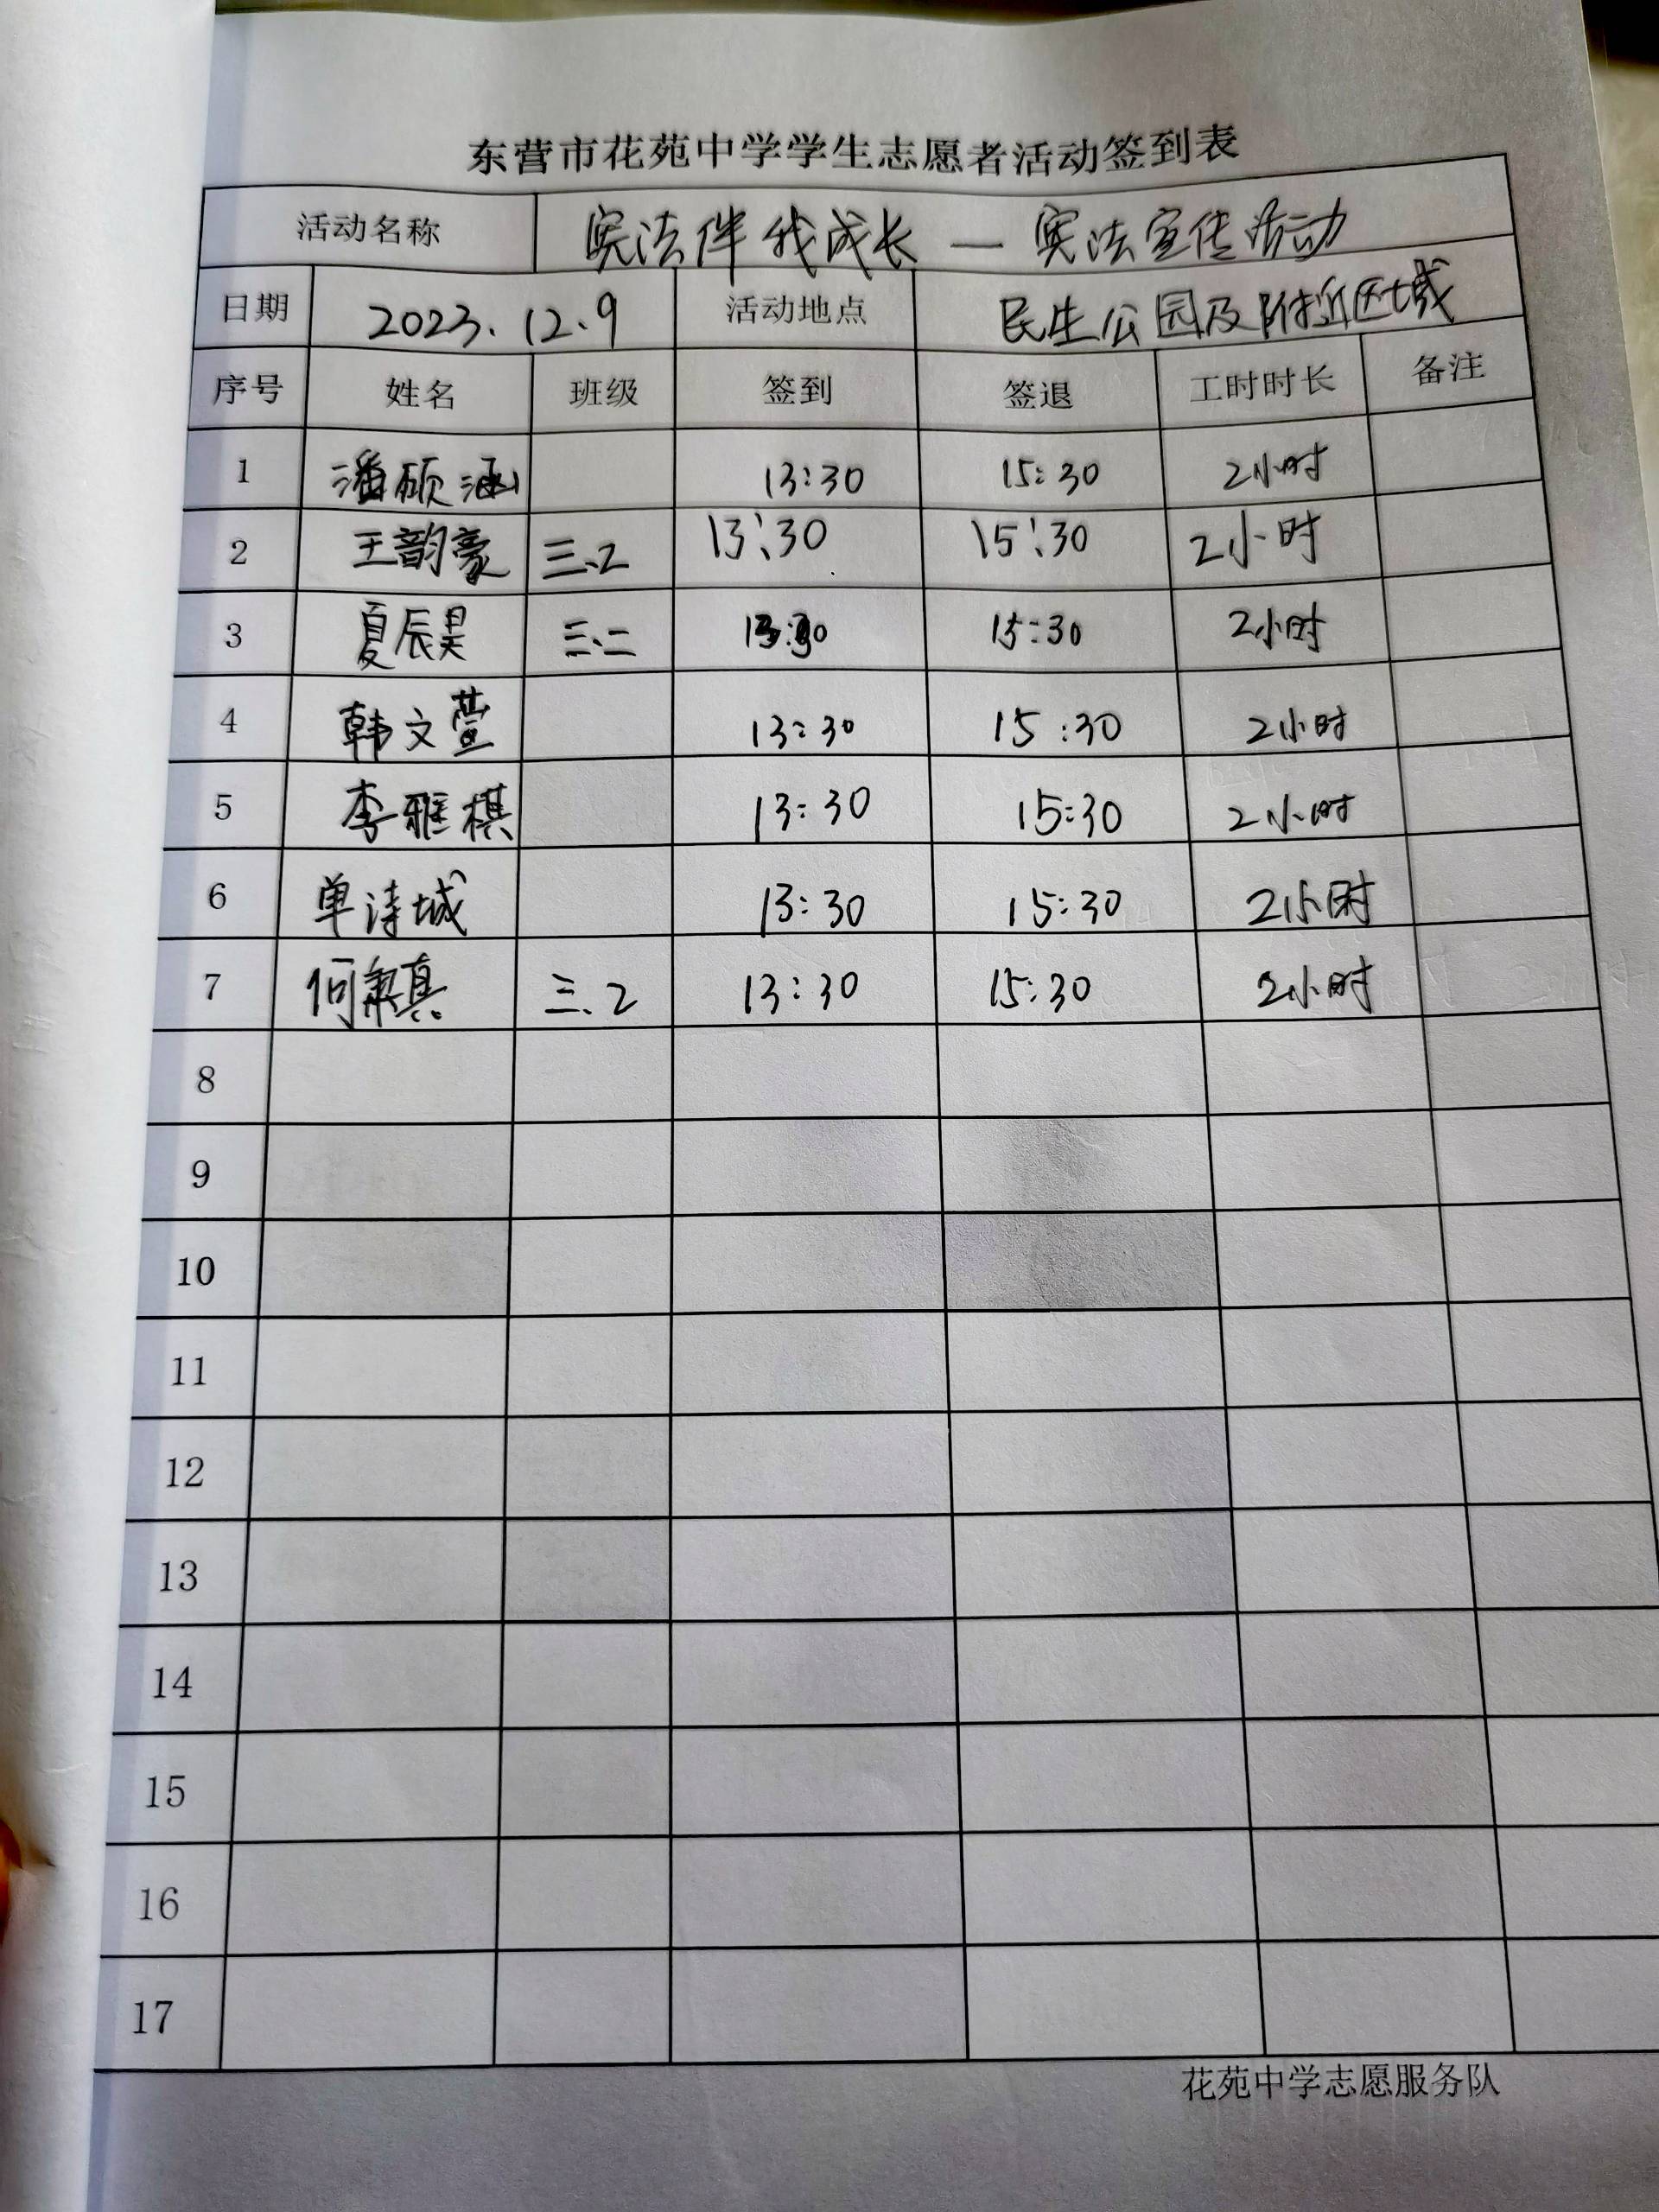 东营市花苑中学学生志愿者活动签到表
活动名称 宪法伴我成长 — 宪法宣传活动
日期 2023.12.9 活动地点 民生公园及附近区域
序号 姓名 班级 签到 签退 工时时长 备注
1 潘硕涵 13:30 15:30 2小时
2 王韵豪 三.2 13:30 15:30 2小时
3 夏辰昊 三.二 13:30 15:30 2小时
4 韩文萱 13:30 15:30 2小时
5 李雅棋 13:30 15:30 2小时
6 单诗城 13:30 15:30 2小时
7 三.2 13:30 15:30 2小时
8
9
10
11
12
13
14
15
16
17
花苑中学志愿服务队